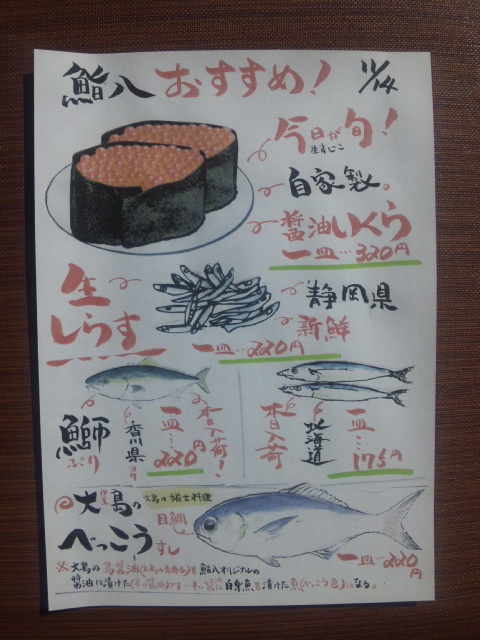 鮨八 おすすめ! 11/14
今日が旬!
生すじこ
自家製。
醤油いくら
一皿…320円
生しらす
静岡県
新鮮
一皿…220円
鰤
ぶり
香川県より
一皿…220円
本日入荷!
本日入荷
北海道
一皿…175円
大島の
大島の郷土料理
べっこうすし
目鯛
一皿…220円
※大島の島醤油(大島の青唐辛子)を鮨八オリジナルの
醤油に漬けた
白身魚を漬けた魚(べっこう色)になる。